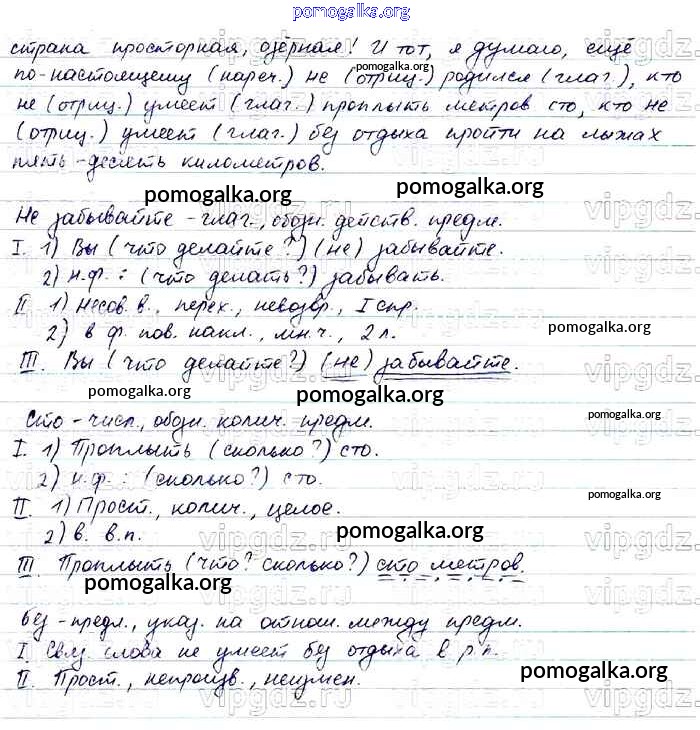 pomogalka.org
страна просторная, озёрная! И тот, я думаю, ещё
по-настоящему (нареч.) не (отриц.) родился (глаг.), кто
не (отриц.) умеет (глаг.) проплыть метров сто, кто не
(отриц.) умеет (глаг.) без отдыха пройти на лыжах
пять-десять километров.
pomogalka.org pomogalka.org
Не забывайте - глаг., обозн. действ. предм.
I. 1) Вы (что делайте?) (не) забывайте.
2) н.ф.: (что делать?) забывать.
II 1) Несов. в., перех., невозвр., I спр.
2) в ф. пов. накл., мн.ч., 2 л.
pomogalka.org
III. Вы (что делайте?) (не) забывайте.
pomogalka.org pomogalka.org
Сто - числ., обозн. колич. предм.
pomogalka.org
I. 1) Проплыть (сколько?) сто.
2) н.ф.: (сколько?) сто.
II. 1) Прост., колич., целое.
pomogalka.org
2) в. в.п.
pomogalka.org
III. Проплыть (что? сколько?) сто метров.
pomogalka.org pomogalka.org
Без - предл., указ. на отнош. между предм.
I. Связ. слова не умеет без отдыха в р.п.
II. Прост., непроизв., неизмен.
pomogalka.org
vipgdz.ru